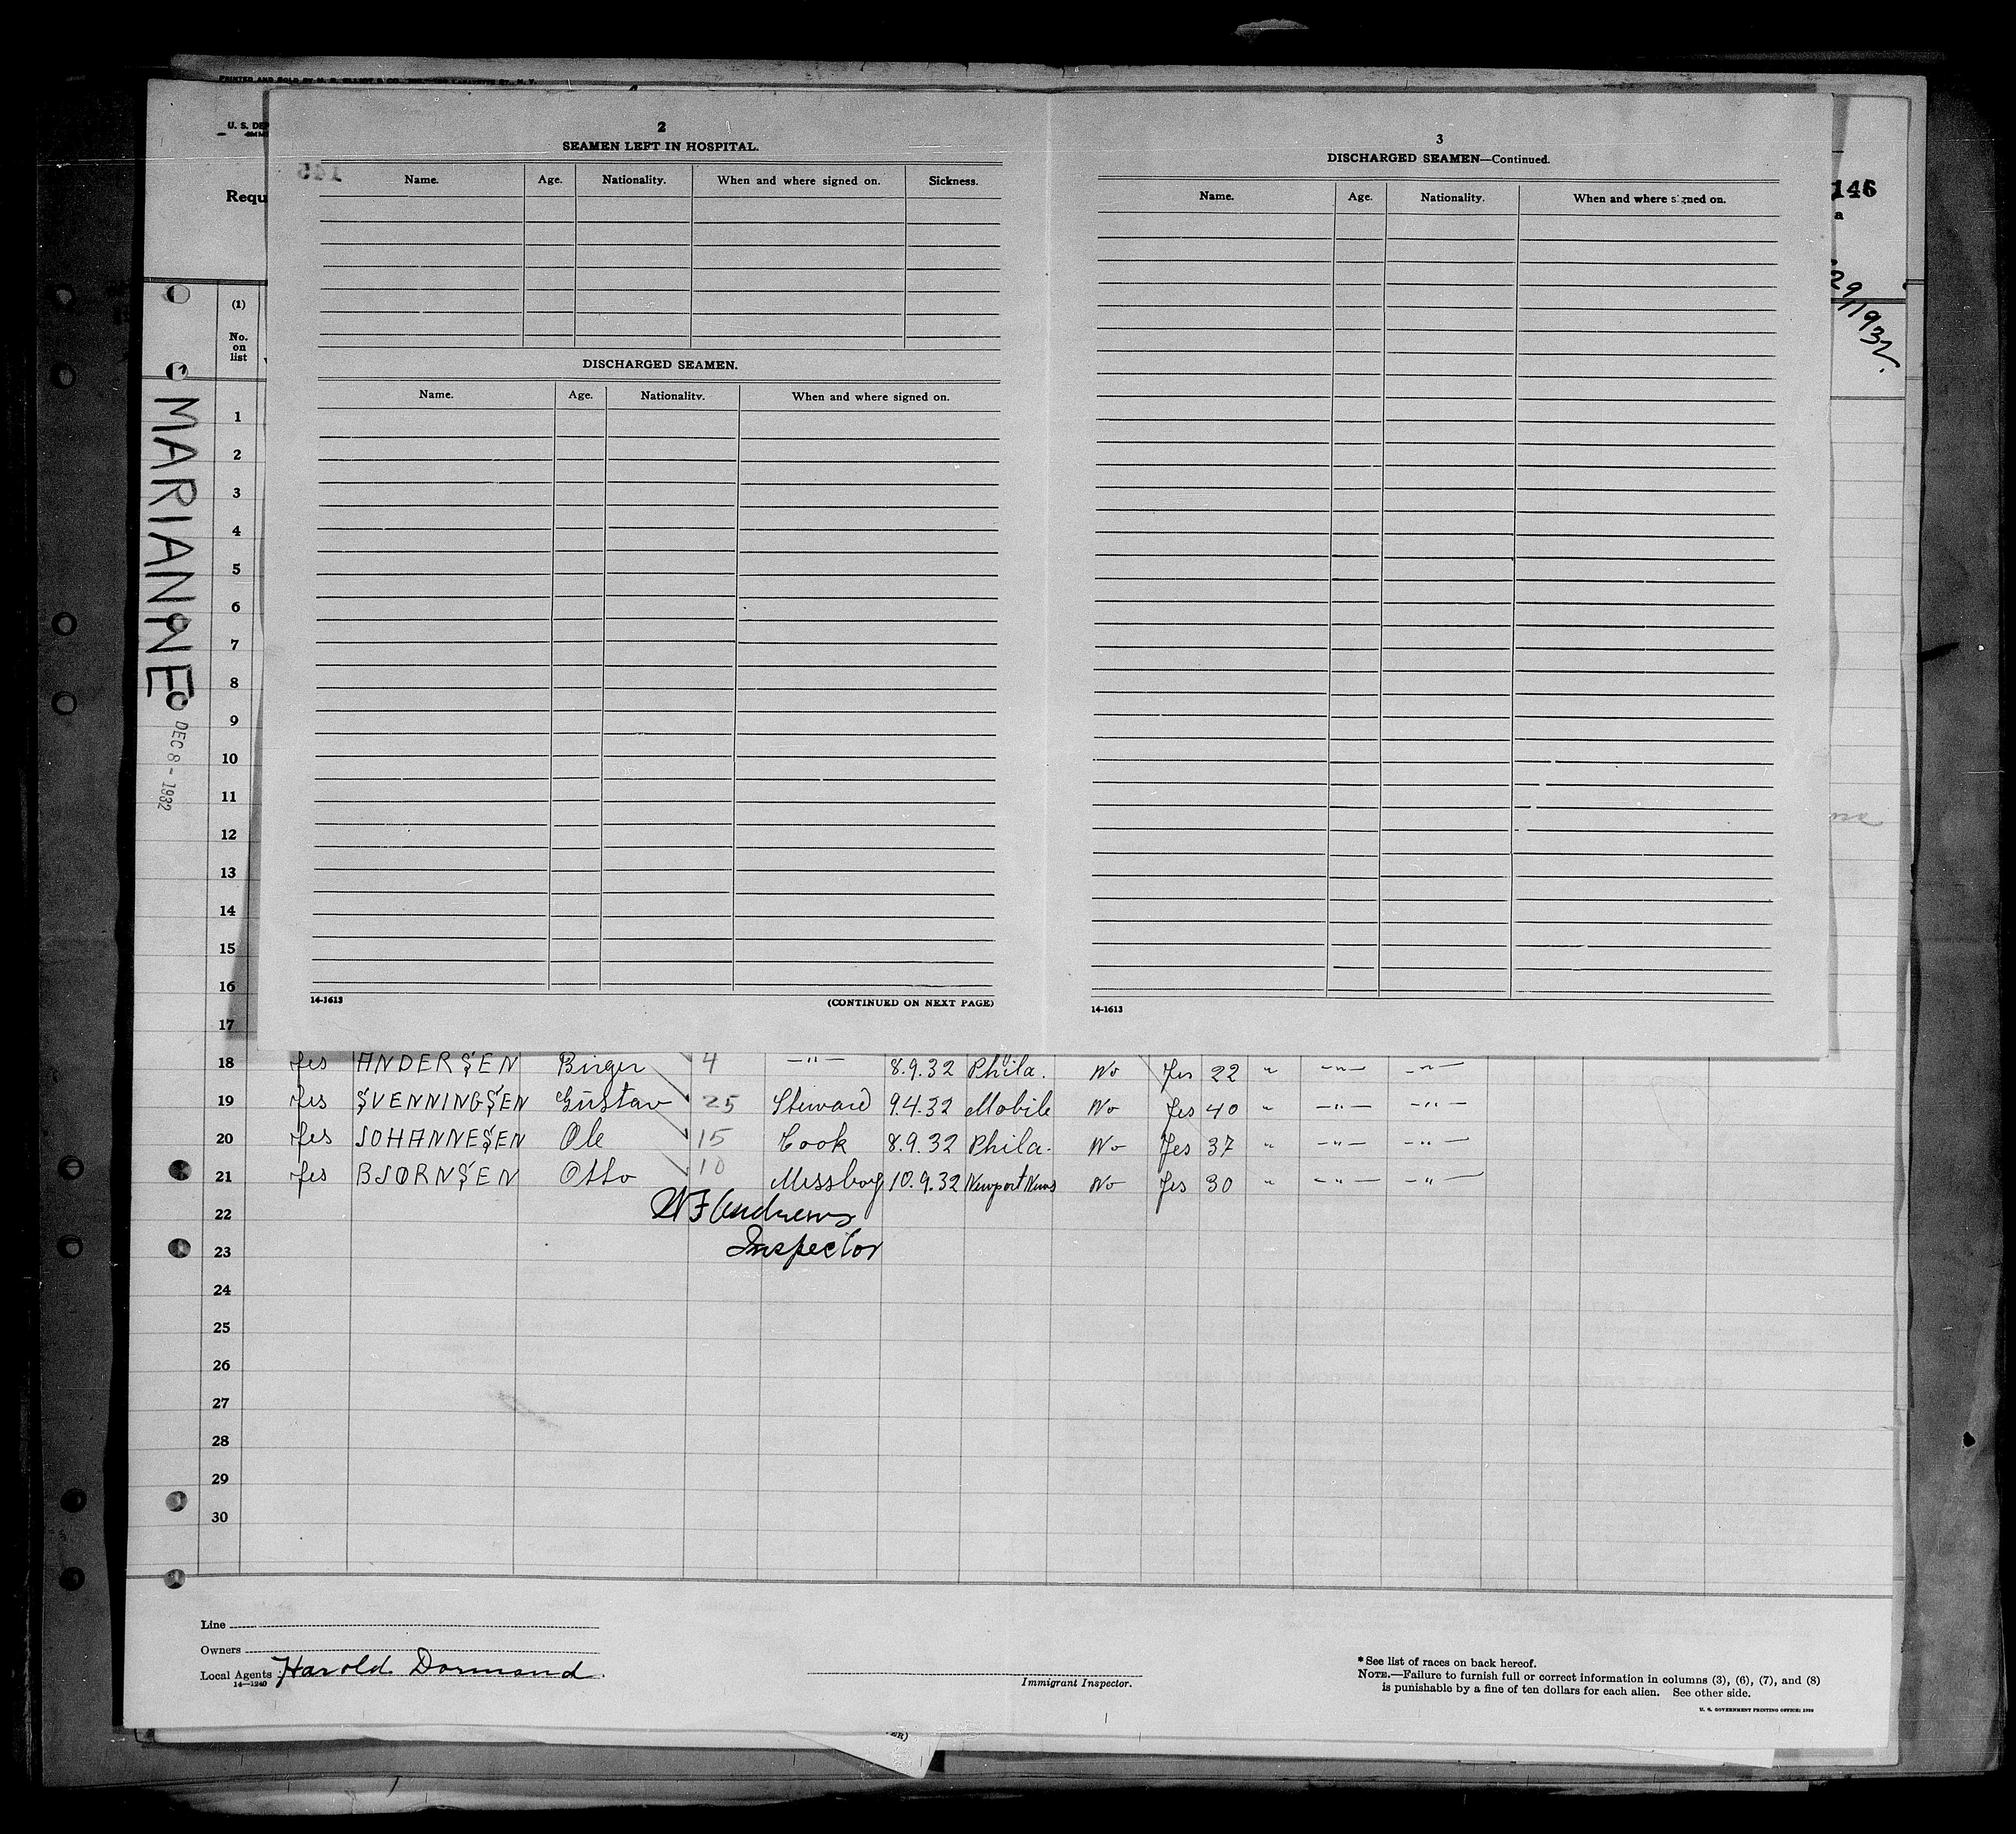 PRINTED AND SOLD BY
U. S. DEP
145
Requ
2
SEAMEN LEFT IN HOSPITAL.
Name. Age. Nationality. When and where signed on. Sickness.
DISCHARGED SEAMEN.
Name. Age. Nationality. When and where signed on.
14-1613 (CONTINUED ON NEXT PAGE)
3
DISCHARGED SEAMEN—Continued.
Name. Age. Nationality. When and where signed on.
14-1613
146
a
29, 1932.
MARIANNE
DEC 8 - 1932
(1)
No.
on
list
1
2
3
4
5
6
7
8
9
10
11
12
13
14
15
16
17
18 Yes ANDERSEN Birger 4 —"— 8.9.32 Phila. No Yes 22 " —"— —"—
19 Yes SVENNINGSEN Gustav 25 Steward 9.4.32 Mobile No Yes 40 " —"— —"—
20 Yes JOHANNESEN Ole 15 Cook 8.9.32 Phila. No Yes 37 " —"— —"—
21 Yes BJØRNSEN Otto 10 Messboy 10.9.32 Newport News No Yes 30 " —"— —"—
22 Andrews
23 Inspector
24
25
26
27
28
29
30
Line
Owners
Local Agents Harold Dormand.
14—1240
Immigrant Inspector.
* See list of races on back hereof.
NOTE.—Failure to furnish full or correct information in columns (3), (6), (7), and (8)
is punishable by a fine of ten dollars for each alien. See other side.
U. S. GOVERNMENT PRINTING OFFICE: